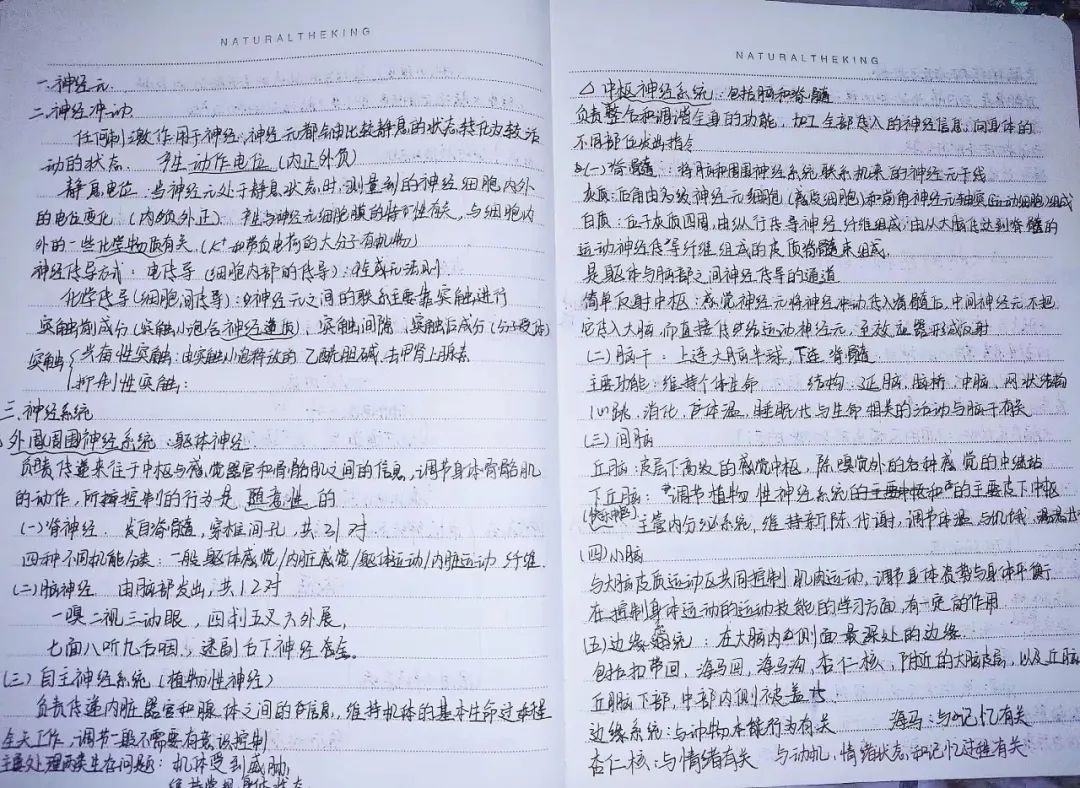 NATURALTHEKING
一.神经元
二.神经冲动
任何刺激作用于神经,神经元都会由比较静息的状态转化为较活
动的状态. 产生动作电位(内正外负)
静息电位:当神经元处于静息状态时,测量到的神经细胞内外
的电位变化(内负外正). 产生与神经元细胞膜的特可性有关,与细胞内
外的一些化学物质有关.(K⁺和带负电荷的大分子有机物)
神经传导方式:电传导(细胞内部的传导):全或无法则
化学传导(细胞间传导):神经元之间的联系主要靠突触进行
突触前成分(突触小泡含神经递质)、突触间隙、突触后成分(分子受体)
突触{兴奋性突触:由突触小泡释放的乙酰胆碱,去甲肾上腺素
抑制性突触:
三.神经系统
外周周围神经系统:躯体神经
负责传递来往于中枢与感觉器官和骨骼肌之间的信息,调节身体骨骼肌
的动作,所控制的行为是随意性的
(一)脊神经. 发自脊髓,穿椎间孔,共31对
四种不同机能分类:一般躯体感觉/内脏感觉/躯体运动/内脏运动 纤维.
(二)脑神经 由脑部发出,共12对
一嗅二视三动眼,四滑五叉六外展,
七面八听九舌咽,迷副舌下神经全.
(三)自主神经系统(植物性神经)
负责传递内脏器官和腺体之间的信息,维持机体的基本生命过程
全天工作,调节一般不需要有意识控制
主要处理两类生存问题:机体受到威胁,
NATURALTHEKING
△中枢神经系统:包括脑和脊髓
负责整合和调谐全身的功能,加工全部传入的神经信息,向身体的
不同部位发出指令
(一)脊髓:将脑和周围神经系统联系起来的神经元干线
灰质:后角由多级神经元细胞(感觉细胞)和前角神经元轴突(运动细胞)组成
白质:位于灰质四周,由纵行传导神经纤维组成,由从大脑传达到脊髓的
运动神经传导纤维组成的皮质脊髓束组成.
是躯体与脑部之间神经传导的通道
简单反射中枢:感觉神经元将神经冲动传入脊髓后,中间神经元不把
它传入大脑,而直接传给运动神经元,至效应器形成反射
(二)脑干:上连大脑半球,下连脊髓
主要功能:维持个体生命 结构:延脑,脑桥,中脑,网状结构
心跳,消化,体温,睡眠 与生命相关的活动与脑干有关
(三)间脑
丘脑:皮层下高级的感觉中枢,除嗅觉外的各种感觉的中继站
下丘脑:调节植物性神经系统的主要中枢和的主要皮下中枢
主管内分泌系统,维持新陈代谢,调节体温
(四)小脑
与大脑皮质运动区共同控制肌肉运动,调节身体姿势与身体平衡
在控制身体运动的运动技能的学习方面,有一定的作用
(五)边缘系统:在大脑内侧面最深处的边缘.
包括扣带回,海马回,海马沟,杏仁核,附近的大脑皮层,以及丘脑
丘脑下部,中部内侧被盖等.
边缘系统:与动物本能行为有关 海马:与记忆有关
杏仁核:与情绪有关 与动机,情绪状态和记忆过程有关